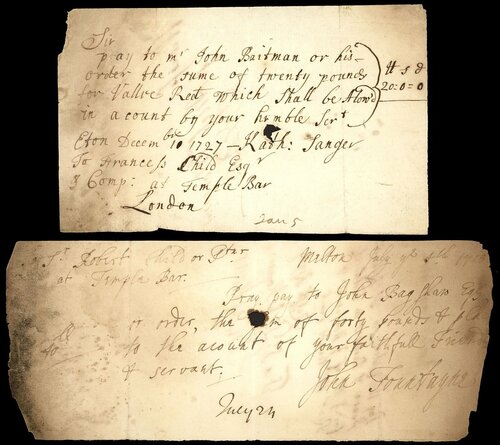 Sir
pay to mr John Baitman or his
order the sume of twenty pounds
for Vallue Recd which Shall be Alow'd
in acount by your humble Sert
₶ s d
20=0=0
Eton Decembre 10 1727 - Kath: Sanger
To Francess Child Esqr
& Comp: at Temple Bar
London
Jan 5
Sr Robert Child or Ptnr
at Temple Bar.
Melton July ye
Pray pay to John Bagshaw Esq
or order, the sum of forty pounds &
to the acount of your faithfull Friend
& servant.
John Fountayne
July 24